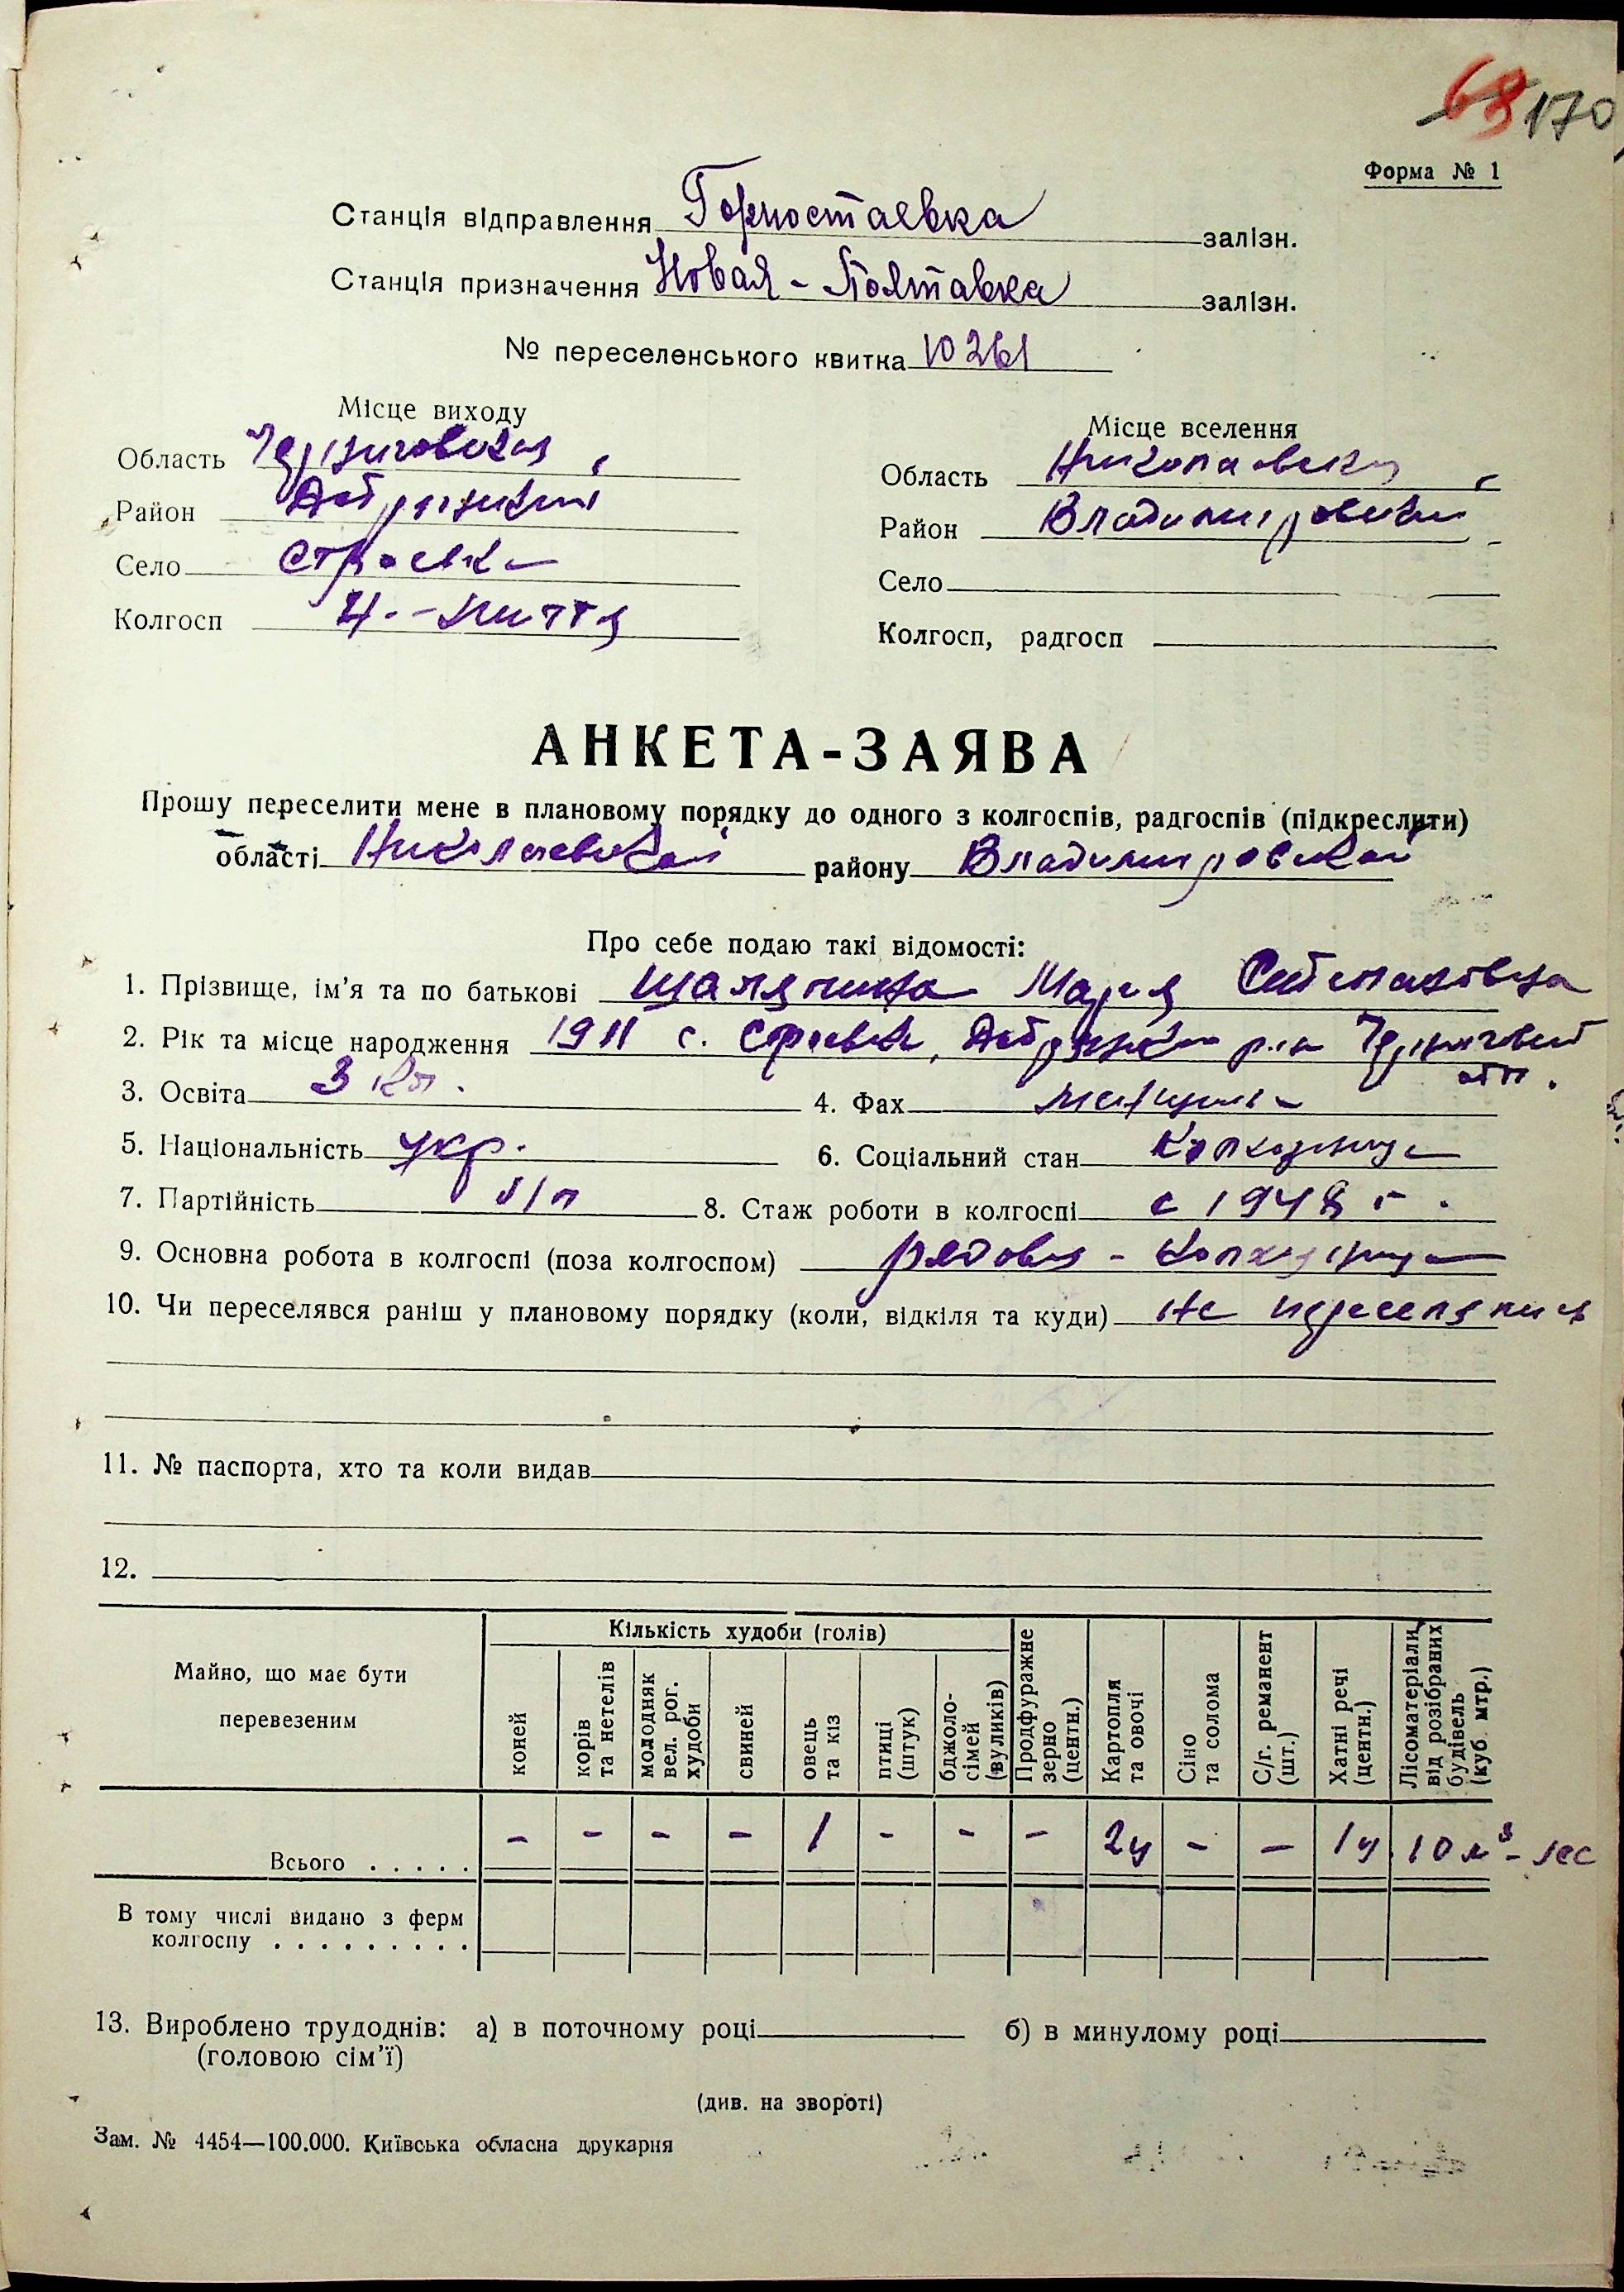 68 170
Форма № 1
Станція відправлення Горностаевка залізн.
Станція призначення Новая - Полтавка залізн.
№ переселенського квитка 10261
Місце виходу
Область Черниговская,
Район Добрянский
Село Строевка
Колгосп Н.-Життя
Місце вселення
Область Николаевская,
Район Владимировский
Село
Колгосп, радгосп
АНКЕТА-ЗАЯВА
Прошу переселити мене в плановому порядку до одного з колгоспів, радгоспів (підкреслити)
області Николаевской району Владимировской
Про себе подаю такі відомості:
1. Прізвище, ім'я та по батькові Мария Степановна
2. Рік та місце народження 1911 с. Строевка, Добрянский р-н Черниговской
обл.
3. Освіта 3 кл. 4. Фах
5. Національність укр. 6. Соціальний стан Колхозница
7. Партійність б/п 8. Стаж роботи в колгоспі с 1948 г.
9. Основна робота в колгоспі (поза колгоспом) рядовая - колхозница
10. Чи переселявся раніш у плановому порядку (коли, відкіля та куди) не переселялись
11. № паспорта, хто та коли видав
12.
Майно, що має бути перевезеним
Кількість худоби (голів)
коней
корів та нетелів
молодняк вел. рог. худоби
свиней
овець та кіз
птиці (штук)
бджоло-сімей (вуликів)
Продфуражне зерно (центн.)
Картопля та овочі
Сіно та солома
С/г. реманент (шт.)
Хатні речі (центн.)
Лісоматеріали від розібраних будівель (куб. мтр.)
Всього . . . . . - - - - 1 - - - 2ц - - 1ц 10 м³ - лес
В тому числі видано з ферм
колгоспу . . . . . . . . .
13. Вироблено трудоднів: а) в поточному році б) в минулому році
(головою сім'ї)
(див. на звороті)
Зам. № 4454—100.000. Київська обласна друкарня